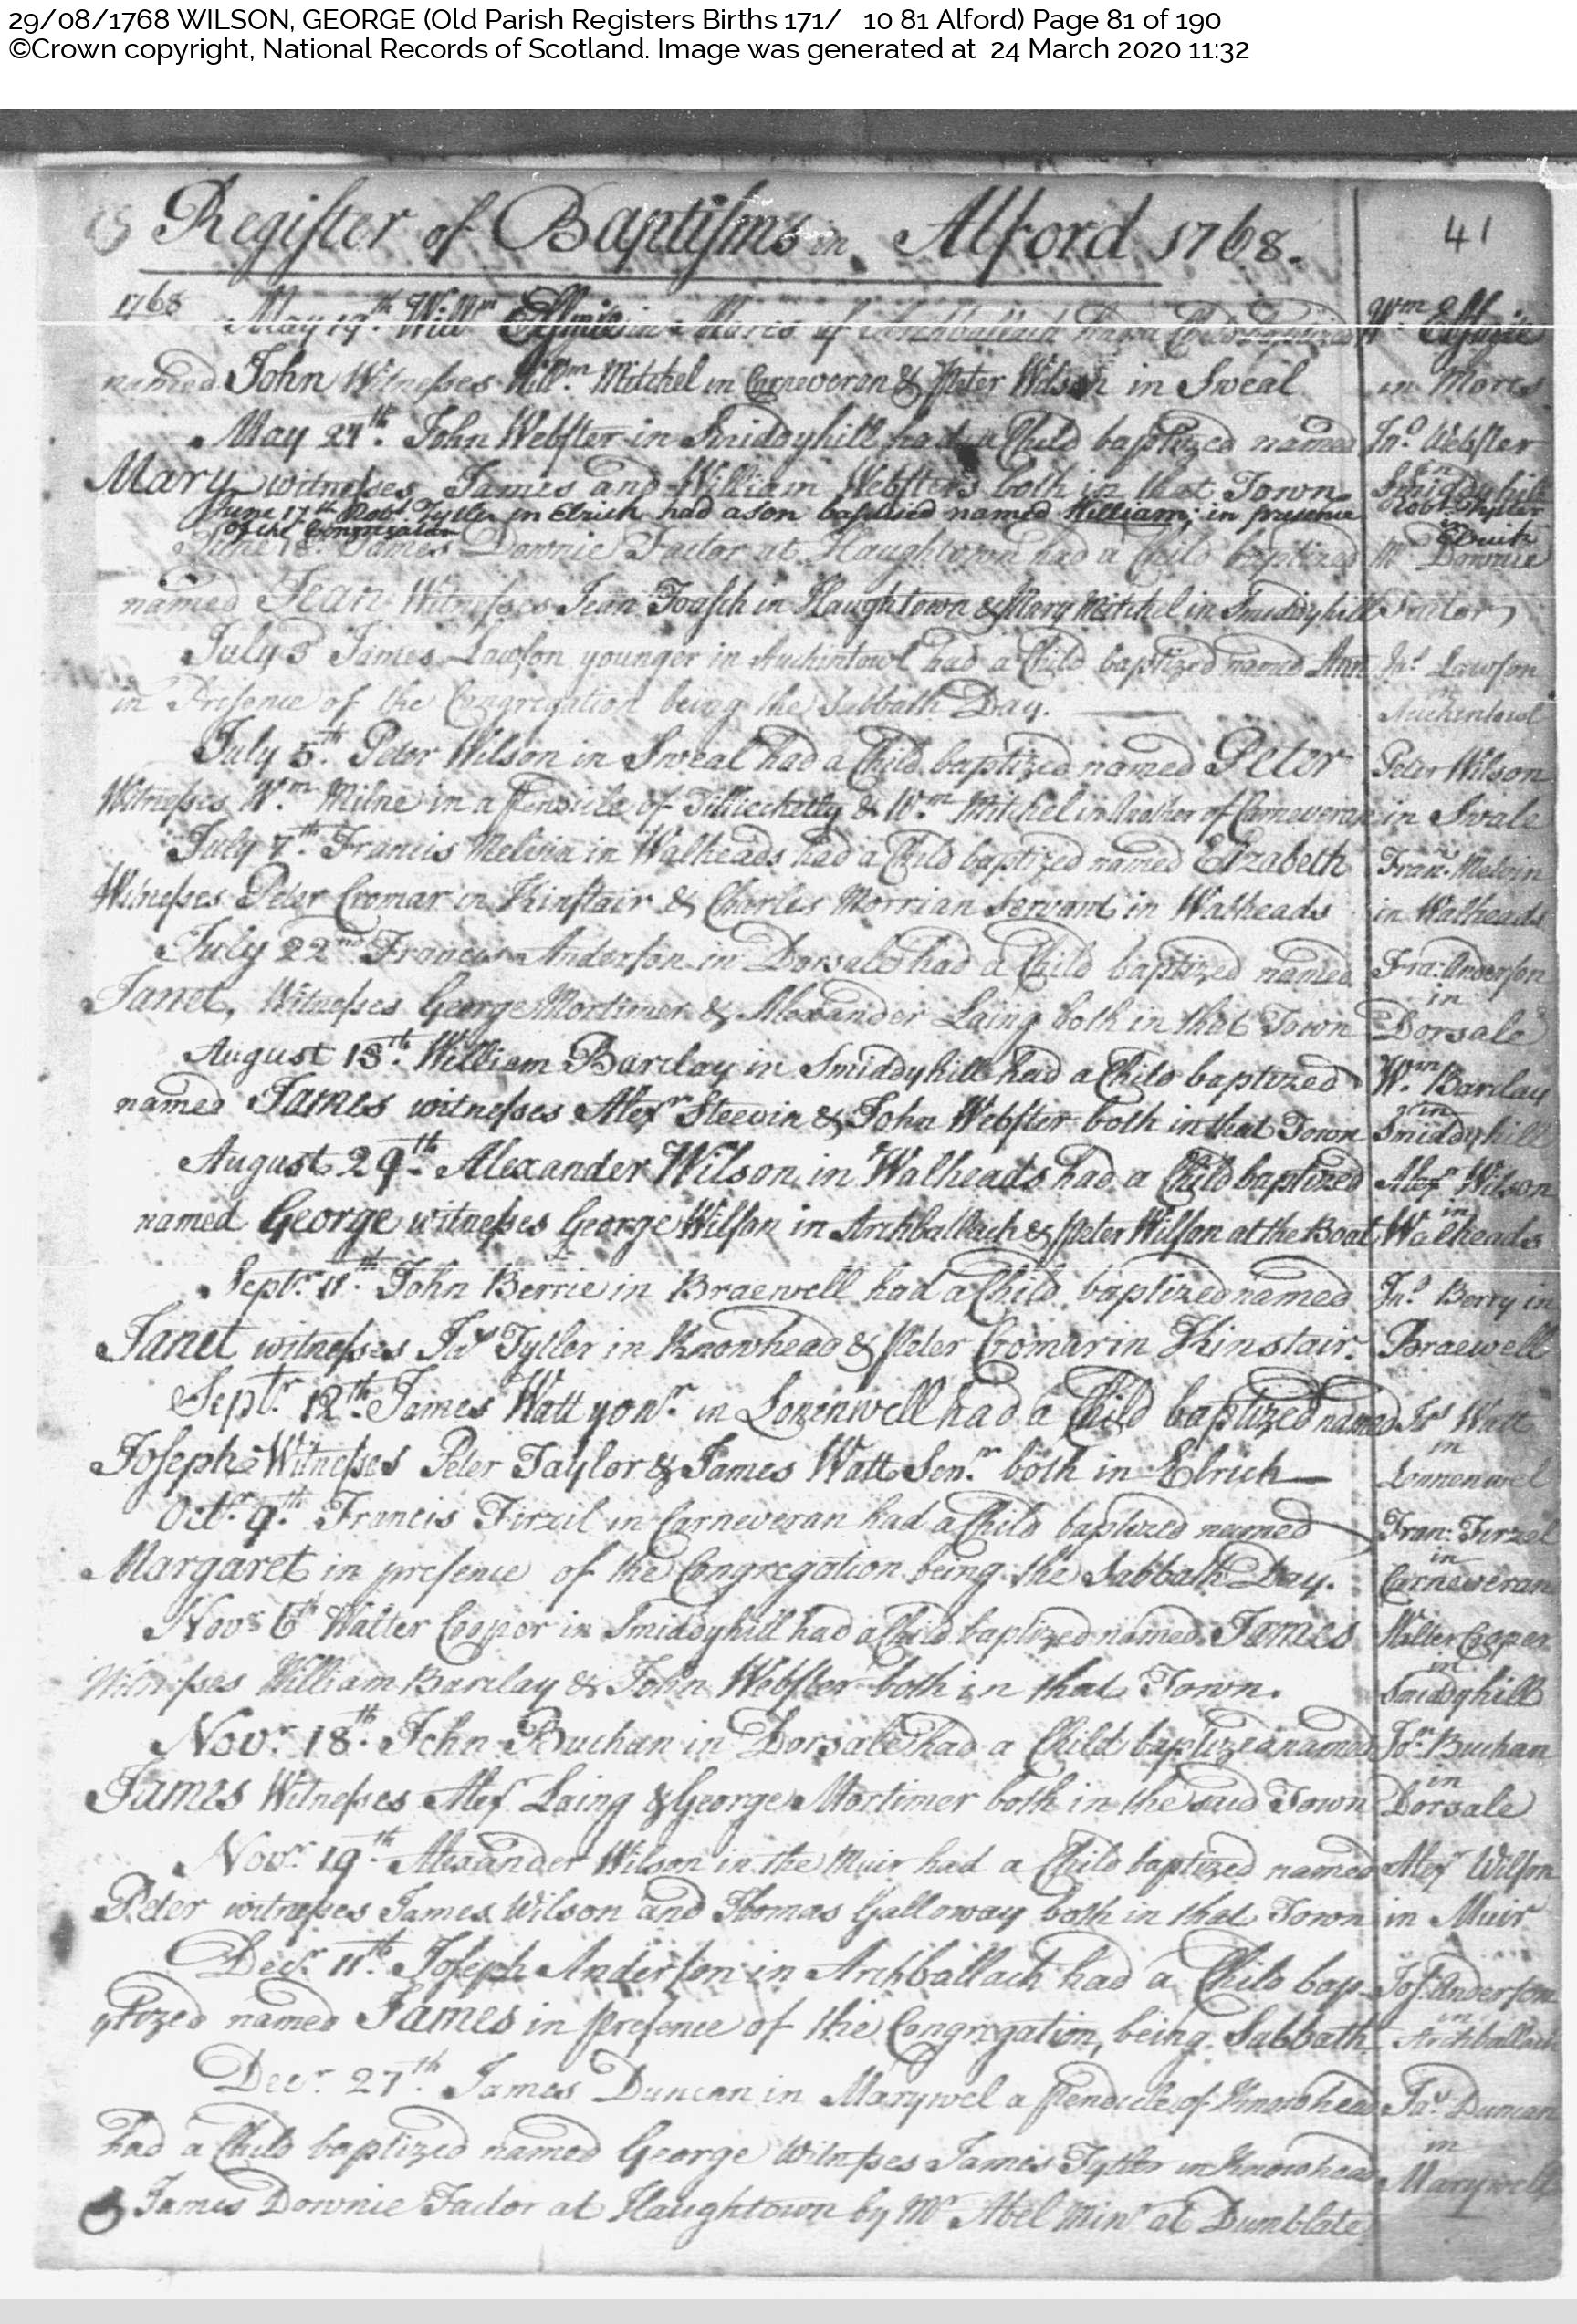 29/08/1768 WILSON, GEORGE (Old Parish Registers Births 171/ 10 81 Alford) Page 81 of 190
©Crown copyright, National Records of Scotland. Image was generated at 24 March 2020 11:32
Register of Baptisms in Alford 1768.
41
1768 May 19th. Willm Elsmie in Mores of Archballach had a Child baptized
Wm Elsmie
named John Witnesses Willm. Mitchel in Carneveran & Peter Wilson in Sweal
in Mores
May 24th. John Webster in Smiddyhill had a Child baptized named
Jno. Webster
Mary witnesses James and William Websters both in that Town.
in Smiddyhill
June 17th Robt. Tytler in Elrick had a son baptised named William; in presence
Robt. Tytler
of the Congregation
Elrick
June James Downie Factor at Haughtown had a Child baptized
Mr Downie
named Jean Witnesses Jean in Haughtown & Mary Mitchel in Smiddyhill
Factor
July 3 James Lawson younger in Auchintowl had a Child baptized named Ann
Lawson
in Presence of the Congregation being the Sabbath Day.
in Auchintowl
July 5th. Peter Wilson in Sweal had a Child baptized named Peter
Peter Wilson
Witnesses Wm. Milne in a Pendicle of Tilliechetly & Wm Mitchel in of Carneveran
in Swale
July 7th. Francis Melvin in Walheads had a Child baptized named Elizabeth
Fran: Melvin
Witnesses Peter Cromar in Kinstair & Charles Morrian Servant in Walheads
in Walheads
July 22nd Francis Anderson in Dorsale had a Child baptized named
Fra: Anderson
in
Janet, Witnesses George Mortimer & Alexander Laing both in that Town
Dorsale
August 13th. William Barclay in Smiddyhill had a Child baptized
Wm. Barclay
in
named James witnesses Alexr Steevin & John Webster both in that Town
Smiddyhill
August 29th. Alexander Wilson in Walheads had a Child baptized
Alexr Wilson
in
named George witnesses George Wilson in Archballach & Peter Wilson at the Boat
Walheads
Septr. 11th. John Berrie in Braewell had a Child baptized named
Jno. Berry in
Janet witnesses Jas Tytler in Knowhead & Peter Cromar in Kinstair.
Braewell
Septr. 12th. James Watt yonr. in Lonenwell had a Child baptized named
Jas Watt
in
Joseph Witnesses Peter Taylor & James Watt Senr. both in Elrick
Lonnenwel
Octr. 9th. Francis Firzil in Carneveran had a Child baptized named
Fran: Firzel
in
Margaret in presence of the Congregation being the Sabbath Day.
Carneweran
Novr 6th Walter Cooper in Smiddyhill had a Child baptized named James
Walter Cooper
in
Witnesses William Barclay & John Webster both in that Town.
Smiddyhill
Novr. 18th. John Buchan in Dorsale had a Child baptized named
Jon Buchan
in
James Witnesses Alexr Laing & George Mortimer both in the said Town
Dorsale
Novr. 19th. Alexander Wilson in the Muir had a Child baptized named
Alexr Wilson
Peter witnesses James Wilson and Thomas Galloway both in that Town
in Muir
Decr. 11th. Joseph Anderson in Archballach had a Child bap-
Jos: Anderson
in
ptized named James in presence of the Congregation, being Sabbath
Archballach
Decr. 27th. James Duncan in Marywel a pendicle of Knowhead
Jas. Duncan
in
had a Child baptized named George Witnesses James Tytler in Knowhead
Marywell
& James Downie Factor at Haughtown by Mr Abel Minr at Dumblate